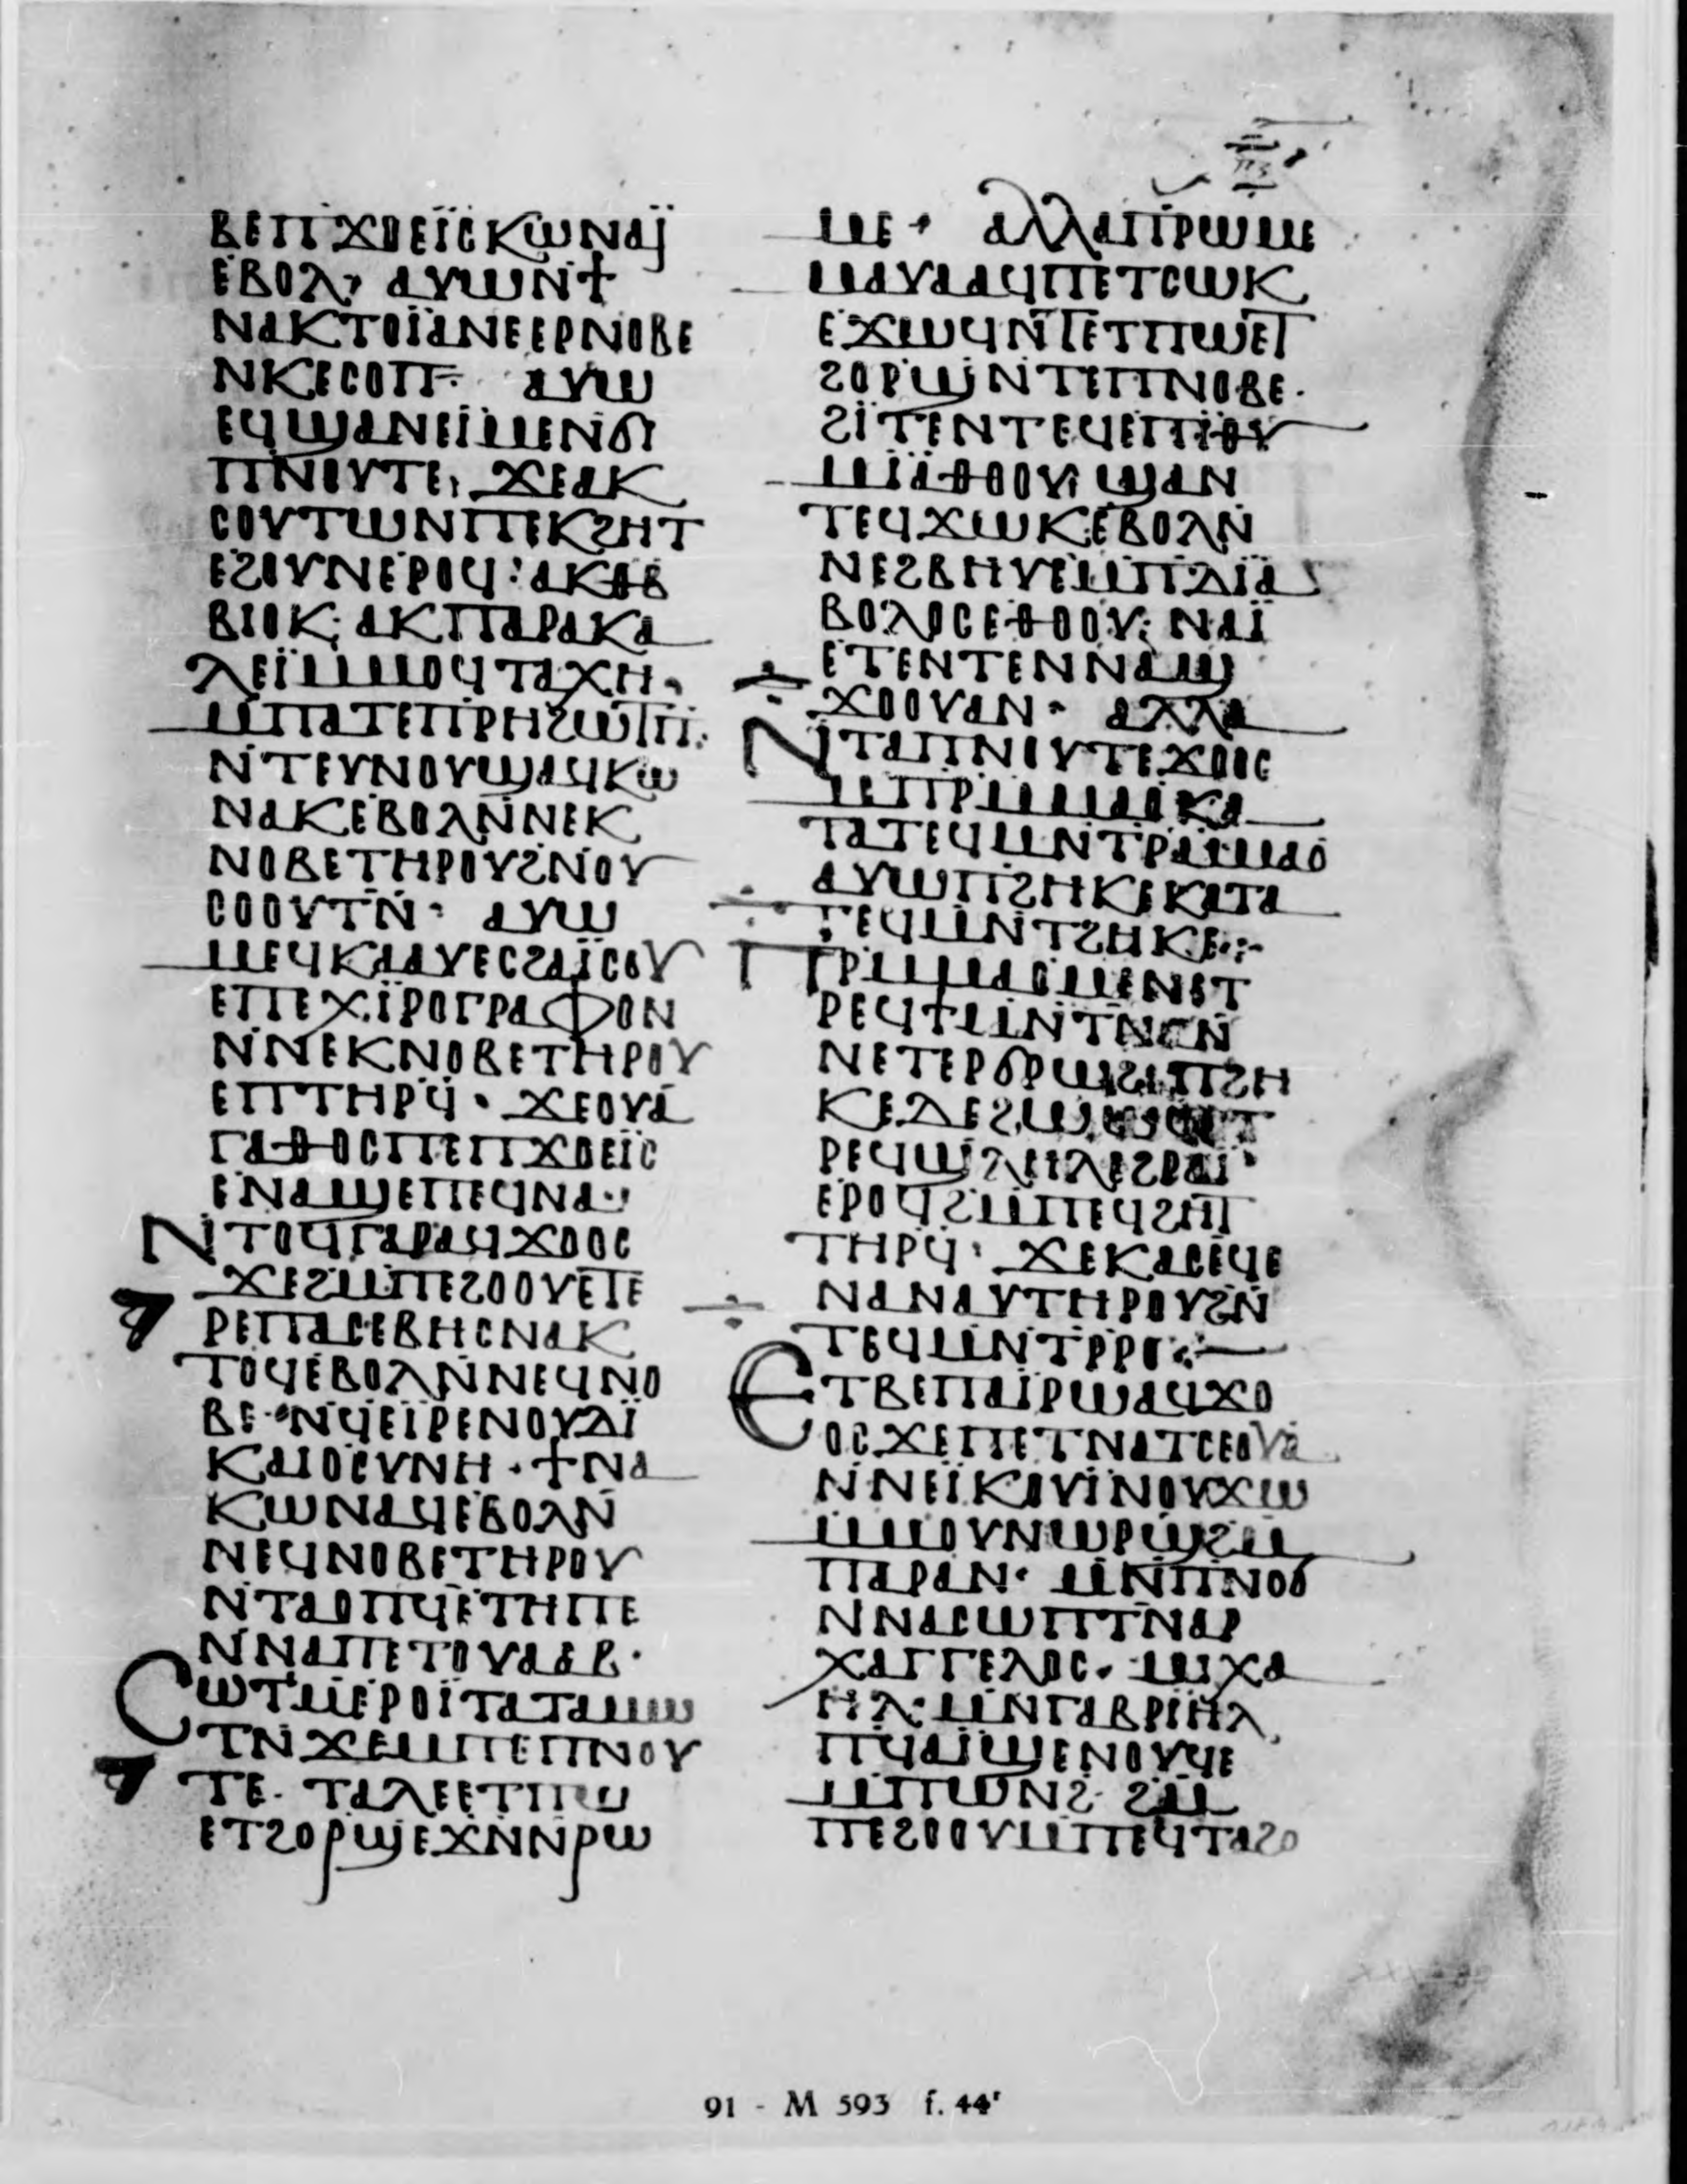 ⲡ̅ⲍ̅
ⲃⲉⲡϫⲟⲉⲓ̈ⲥⲕⲱⲛⲁⲓ̈
ⲉⲃⲟⲗ· ⲁⲩⲱⲛϯ
ⲛⲁⲕⲧⲟⲓ̈ⲁⲛⲉⲉⲣⲛⲟⲃⲉ
ⲛⲕⲉⲥⲟⲡ· ⲁⲩⲱ
ⲉϥϣⲁⲛⲉⲓ̈ⲙⲉⲛϭⲓ
ⲡⲛⲟⲩⲧⲉ, ϫⲉⲁⲕ
ⲥⲟⲩⲧⲱⲛⲡⲉⲕϩⲏⲧ
ⲉϩⲟⲩⲛⲉⲣⲟϥ: ⲁⲕⲑⲃ
ⲃⲓⲟⲕ: ⲁⲕⲡⲁⲣⲁⲕⲁ
ⲗⲉⲓ̈ⲙⲙⲟϥⲧⲁⲭⲏ·
ⲙⲡⲁⲧⲉⲡⲣⲏϩⲱⲧⲡ·
ⲛ̇ⲧⲉⲩⲛⲟⲩϣⲁϥⲕⲱ
ⲛⲁⲕⲉⲃⲟⲗⲛ̇ⲛⲉⲕ
ⲛⲟⲃⲉⲧⲏⲣⲟⲩϩⲛ̇ⲟⲩ
ⲥⲟⲟⲩⲧⲛ̇· ⲁⲩⲱ
ⲙⲉϥⲕⲁⲁⲩⲉⲥϩⲁⲓ̈ⲥⲟⲩ
ⲉⲡⲉⲭⲓ̈ⲣⲟⲅⲣⲁⲫⲟⲛ
ⲛ̇ⲛⲉⲕⲛⲟⲃⲉⲧⲏⲣⲟⲩ
ⲉⲡⲧⲏⲣϥ̇· ϫⲉⲟⲩⲁ
ⲅⲁⲑⲟⲥⲡⲉⲡϫⲟⲉⲓ̈ⲥ
ⲉⲛⲁϣⲉⲡⲉϥⲛⲁ·
ⲛ̇ⲧⲟϥⲅⲁⲣⲁϥϫⲟⲟⲥ
ϫⲉϩⲙ̇ⲡⲉϩⲟⲟⲩⲉⲧⲉ
ⲣⲉⲡⲁⲥⲉⲃⲏⲥⲛⲁⲕ
ⲧⲟϥⲉⲃⲟⲗⲛ̇ⲛⲉϥⲛⲟ
ⲃⲉ· ⲛ̇ϥⲉⲓⲣⲉⲛⲟⲩⲇⲓ̈
ⲕⲁⲓⲟⲥⲩⲛⲏ· ϯⲛⲁ
ⲕⲱⲛⲁϥⲉⲃⲟⲗⲛ̇
ⲛⲉϥⲛⲟⲃⲉⲧⲏⲣⲟⲩ
ⲛ̇ⲧⲁⲟⲡϥⲉⲧⲏⲡⲉ
ⲛ̇ⲛⲁⲡⲉⲧⲟⲩⲁⲁⲃ·
ⲥⲱⲧⲙ̇ⲉⲣⲟⲓ̈ⲧⲁⲧⲁⲙⲱ
ⲧⲛϫⲉⲙⲡⲉⲡⲛⲟⲩ
ⲧⲉ· ⲧⲁⲗⲉⲉⲧⲡⲱ
ⲉⲧϩⲟⲣϣⲉϫⲛ̇ⲛ̇ⲣⲱ
ⲙⲉ· ⲁⲗⲗⲁⲡⲣⲱⲙⲉ
ⲙⲁⲩⲁⲁϥⲡⲉⲧⲥⲱⲕ
ⲉϫⲱϥⲛ̇ⲧⲉⲧⲡⲱⲉⲧ
ϩⲟⲣϣⲛ̇ⲧⲉⲡⲛⲟⲃⲉ·
ϩⲓ̈ⲧⲉⲛⲧⲉϥⲉⲡⲓⲑⲩ
ⲙⲓ̈ⲁⲑⲟⲟⲩ: ϣⲁⲛ
ⲧⲉϥϫⲱⲕⲉⲃⲟⲗⲛ̇
ⲛⲉϩⲃⲏⲩⲉⲙ̇ⲡⲇⲓ̈ⲁ
ⲃⲟⲗⲟⲥⲉⲑⲟⲟⲩ: ⲛⲁⲓ̈
ⲉⲧⲉⲛⲧⲉⲛⲛⲁϣ
ϫⲟⲟⲩⲁⲛ· ⲁⲗⲗⲁ
ⲛ̇ⲧⲁⲡⲛⲟⲩⲧⲉϫⲟⲟⲥ
ϫⲉⲡⲣⲙ̇ⲙⲁⲟⲕⲁ
ⲧⲁⲧⲉϥⲙⲛ̇ⲧⲣⲙ̇ⲙⲁⲟ
ⲁⲩⲱⲡϩⲏⲕⲉⲕⲁⲧⲁ
ⲧⲉϥⲙⲛ̇ⲧϩⲏⲕⲉ·:·
ⲡⲣⲙ̇ⲙⲁⲟⲙⲉⲛⲉⲧ
ⲣⲉϥϯⲙⲛ̇ⲧⲛⲁⲛ̇
ⲛⲉⲧⲉⲣϭⲣⲱϩⲓ̈ⲡϩⲏ
ⲕⲉⲇⲉϩⲱⲱϥⲉⲧ
ⲣⲉϥϣⲗⲏⲗⲉϩⲣⲁⲓ̈·
ⲉⲣⲟϥϩⲙ̇ⲡⲉϥϩⲏⲧ
ⲧⲏⲣϥ̇· ϫⲉⲕⲁⲥⲉϥⲉ
ⲛⲁⲛⲁⲩⲧⲏⲣⲟⲩϩⲛ̇
ⲧⲉϥⲙⲛ̇ⲧⲣⲣⲟ·:·
ⲉⲧⲃⲉⲡⲁⲓ̈ⲣⲱⲁϥϫⲟ
ⲟⲥϫⲉⲡⲉⲧⲛⲁⲧⲥⲉⲟⲩⲁ
ⲛ̇ⲛⲉⲓ̈ⲕⲟⲩⲓ̈ⲛⲟⲩϫⲱ
ⲙ̇ⲙⲟⲩⲛⲱⲣϣϩⲙ̇
ⲡⲁⲣⲁⲛ· ⲙⲛ̇ⲡⲛⲟϭ
ⲛ̇ⲛⲁⲥⲱⲡⲧⲛⲁⲣ
ⲭⲁⲅⲅⲉⲗⲟⲥ· ⲙⲓⲭⲁ
ⲏⲗ: ⲙⲛ̇ⲅⲁⲃⲣⲓⲏⲗ
ⲡϥⲁⲓ̈ϣⲉⲛⲟⲩϥⲉ
ⲙ̇ⲡⲱⲛϩ· ϩⲙ̇
ⲡⲉϩⲟⲟⲩⲙ̇ⲡⲉϥⲧⲁϩⲟ
91 - M 593 f. 44ʳ